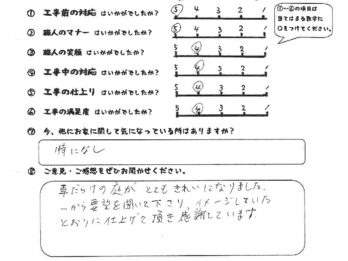 ① 工事前の対応 はいかがでしたか? 5 4 3 2 1
② 職人のマナー はいかがでしたか? 5 4 3 2 1
③ 職人の笑顔 はいかがでしたか? 5 4 3 2 1
④ 工事中の対応 はいかがでしたか? 5 4 3 2 1
⑤ 工事の仕上り はいかがでしたか? 5 4 3 2 1
⑥ 工事の満足度 はいかがでしたか? 5 4 3 2 1
①~⑥の項目は
当てはまる数字に
○をつけてください。
⑦ 今、他にお家に関して気になっている所はありますか?
特になし
⑧ ご意見・ご感想をぜひお聞かせください。
草だらけの庭が とてもきれいになりました。
一から要望を聞いて下さり、イメージしていた
とおりに仕上げて頂き、感謝しています